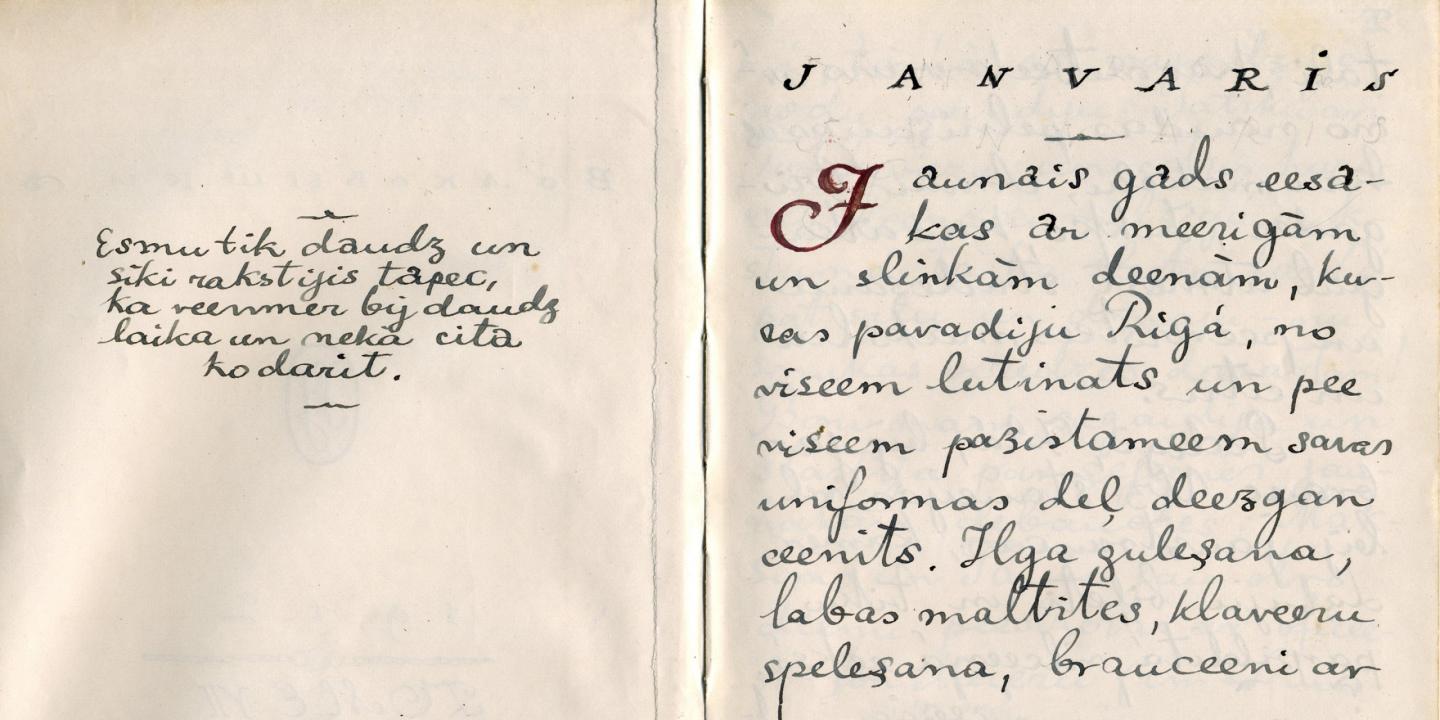 Esmu tik daudz un
siki rakstijis tāpec,
ka veenmer bij daudz
laika un nekā cita
ko darit.
JANVARIS
Jaunais gads eesā-
kas ar meerigām
un slinkām deenām, ku-
ras pavadiju Rigā, no
viseem lutinats un pee
viseem pazistameem savas
uniformas deļ deezgan
ceenits. Ilga guleşana,
labas maltites, klaveeru
speleşana, brauceeni ar